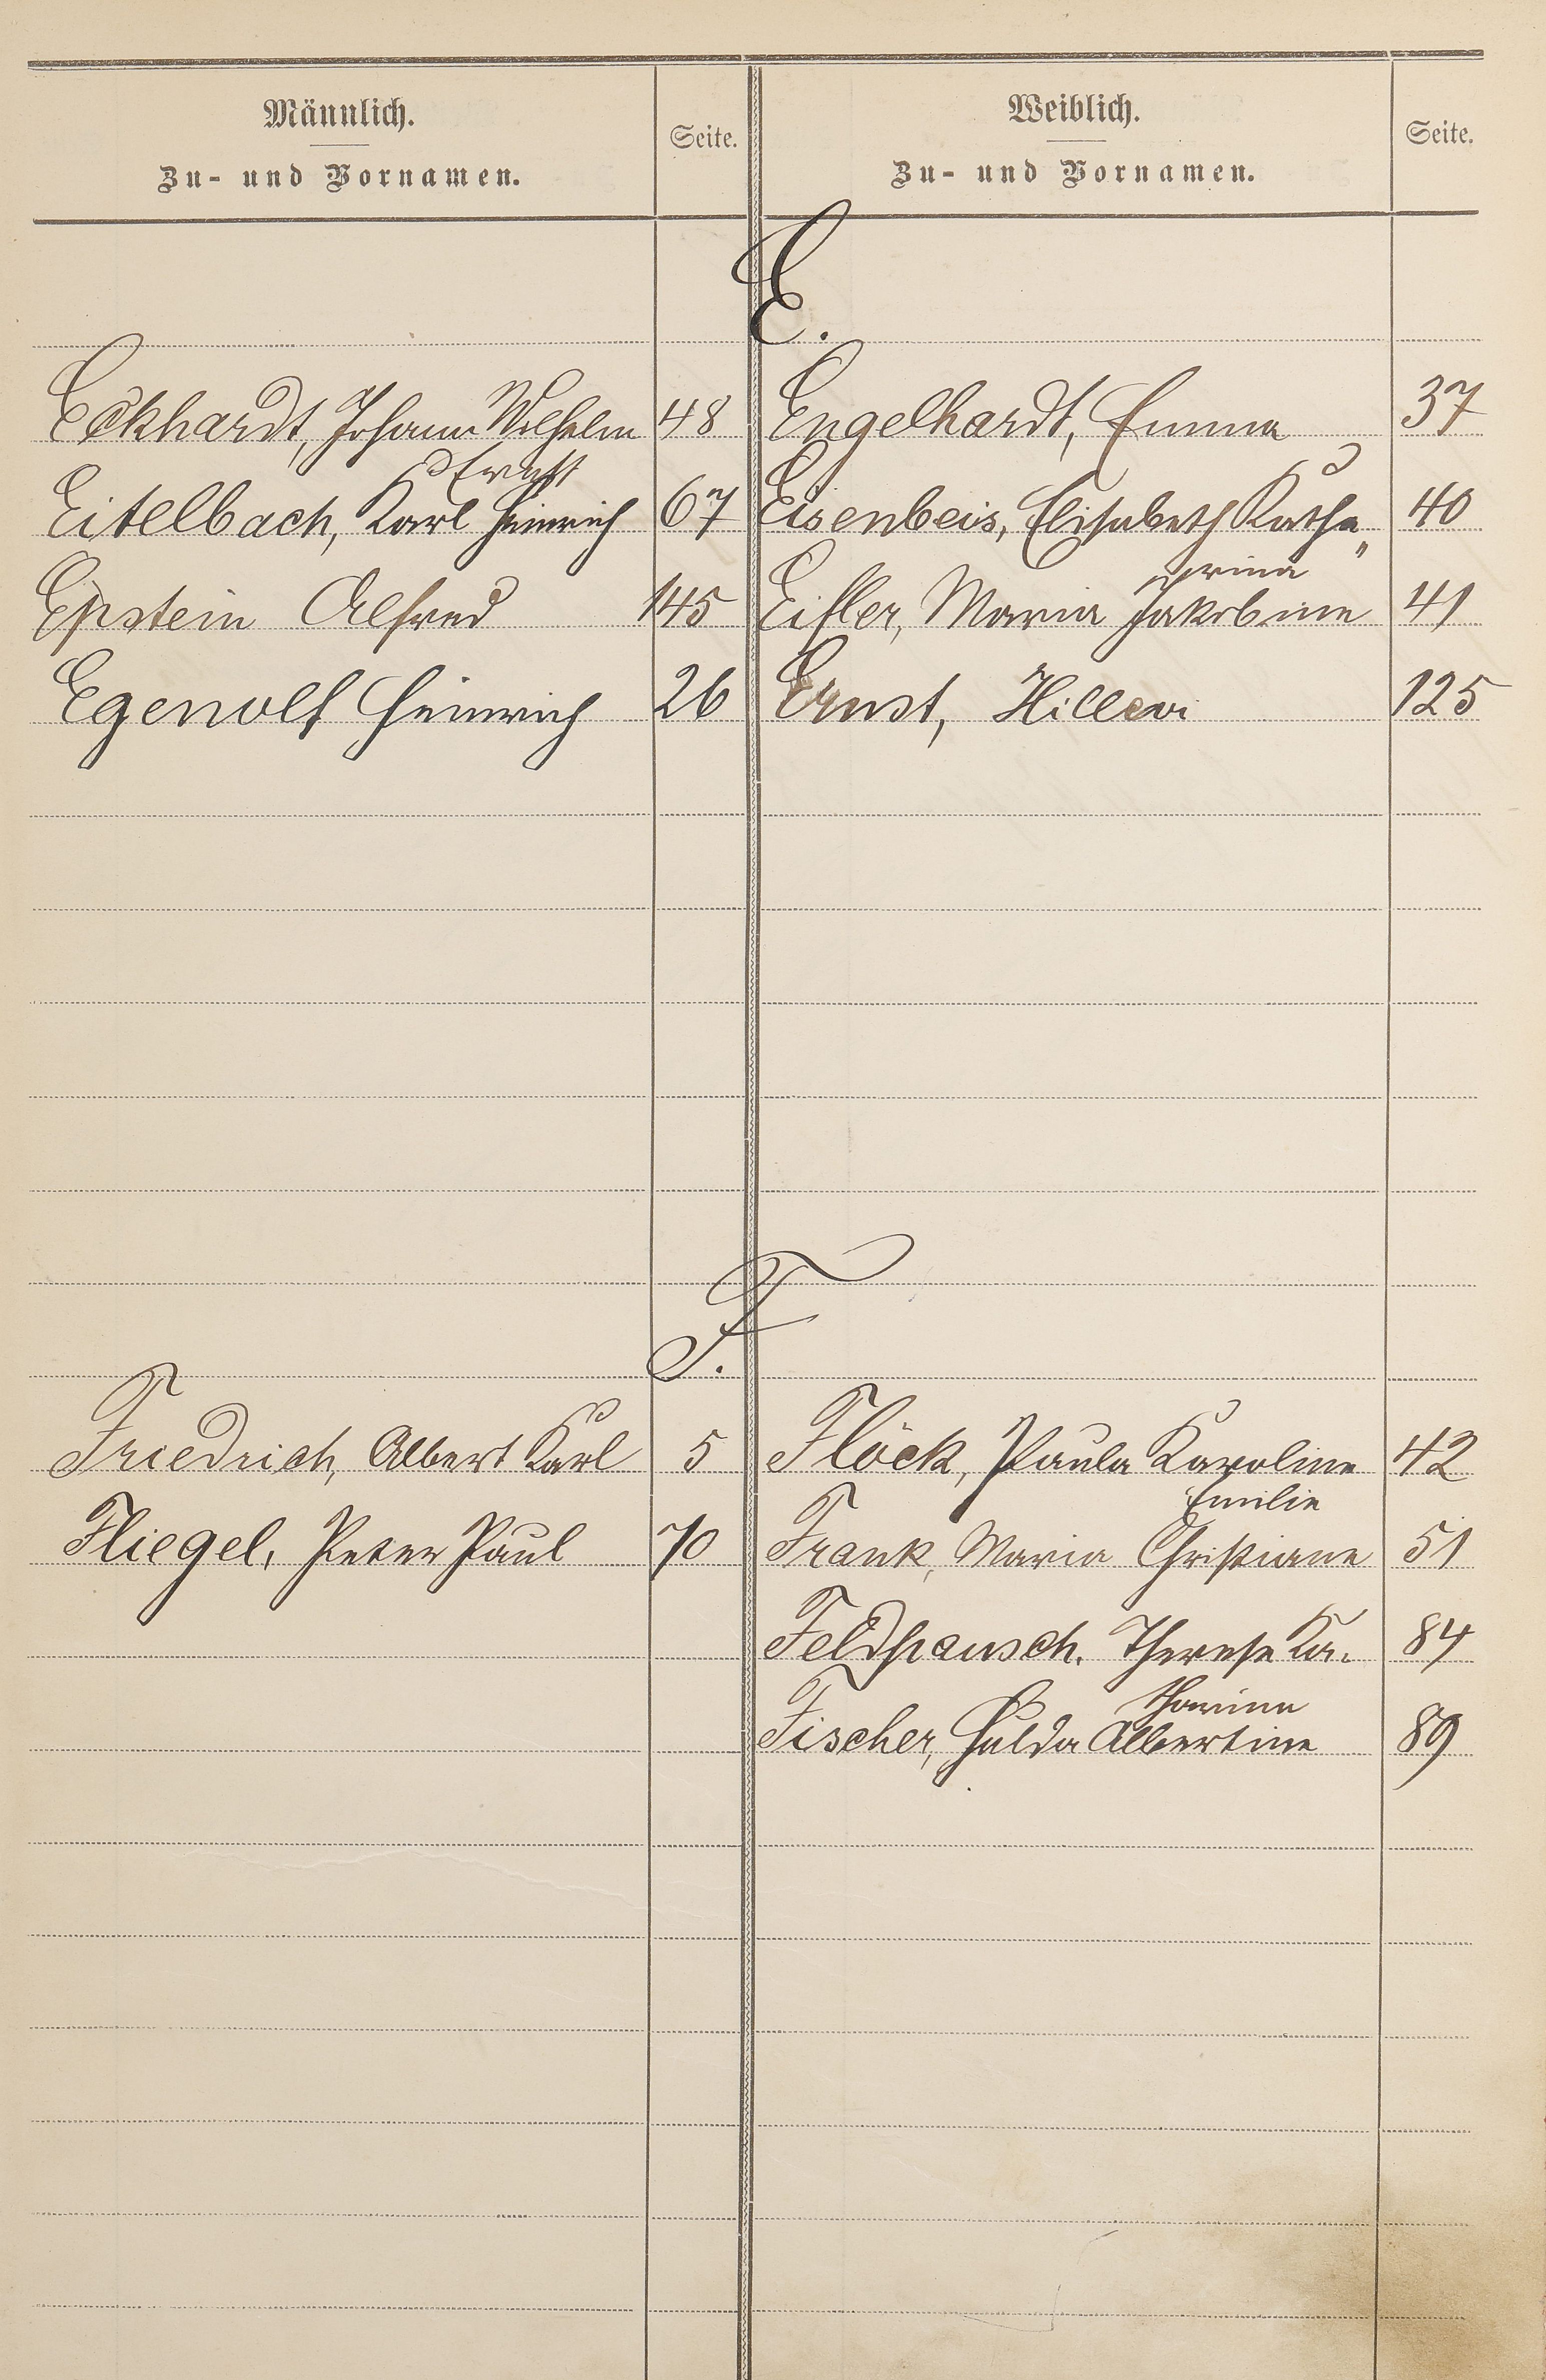 Männlich.
Zu- und Vornamen.
Seite.
Weiblich.
Zu- und Vornamen.
Seite.
E.
Eckhardt, Johann Wilhelm 48 Engelhardt, Emma 37
Ernst
Eitelbach, Karl Heinrich 67 Eisenbeis, Elisabeth Katha„ 40
rina
Epstein Alfred 145 Eifler, Maria Jakobine 41
Egenolf Heinrich 26 Ernst, 125
F.
Friedrich, Albert Karl 5 Flöck, Paula Karoline 42
Emilie
Fliegel, Peter Paul 70 Frank, Maria Christiane 51
Feldhausch. Therese Ka. 84
tharina
Fischer, Hulda Albertine 89